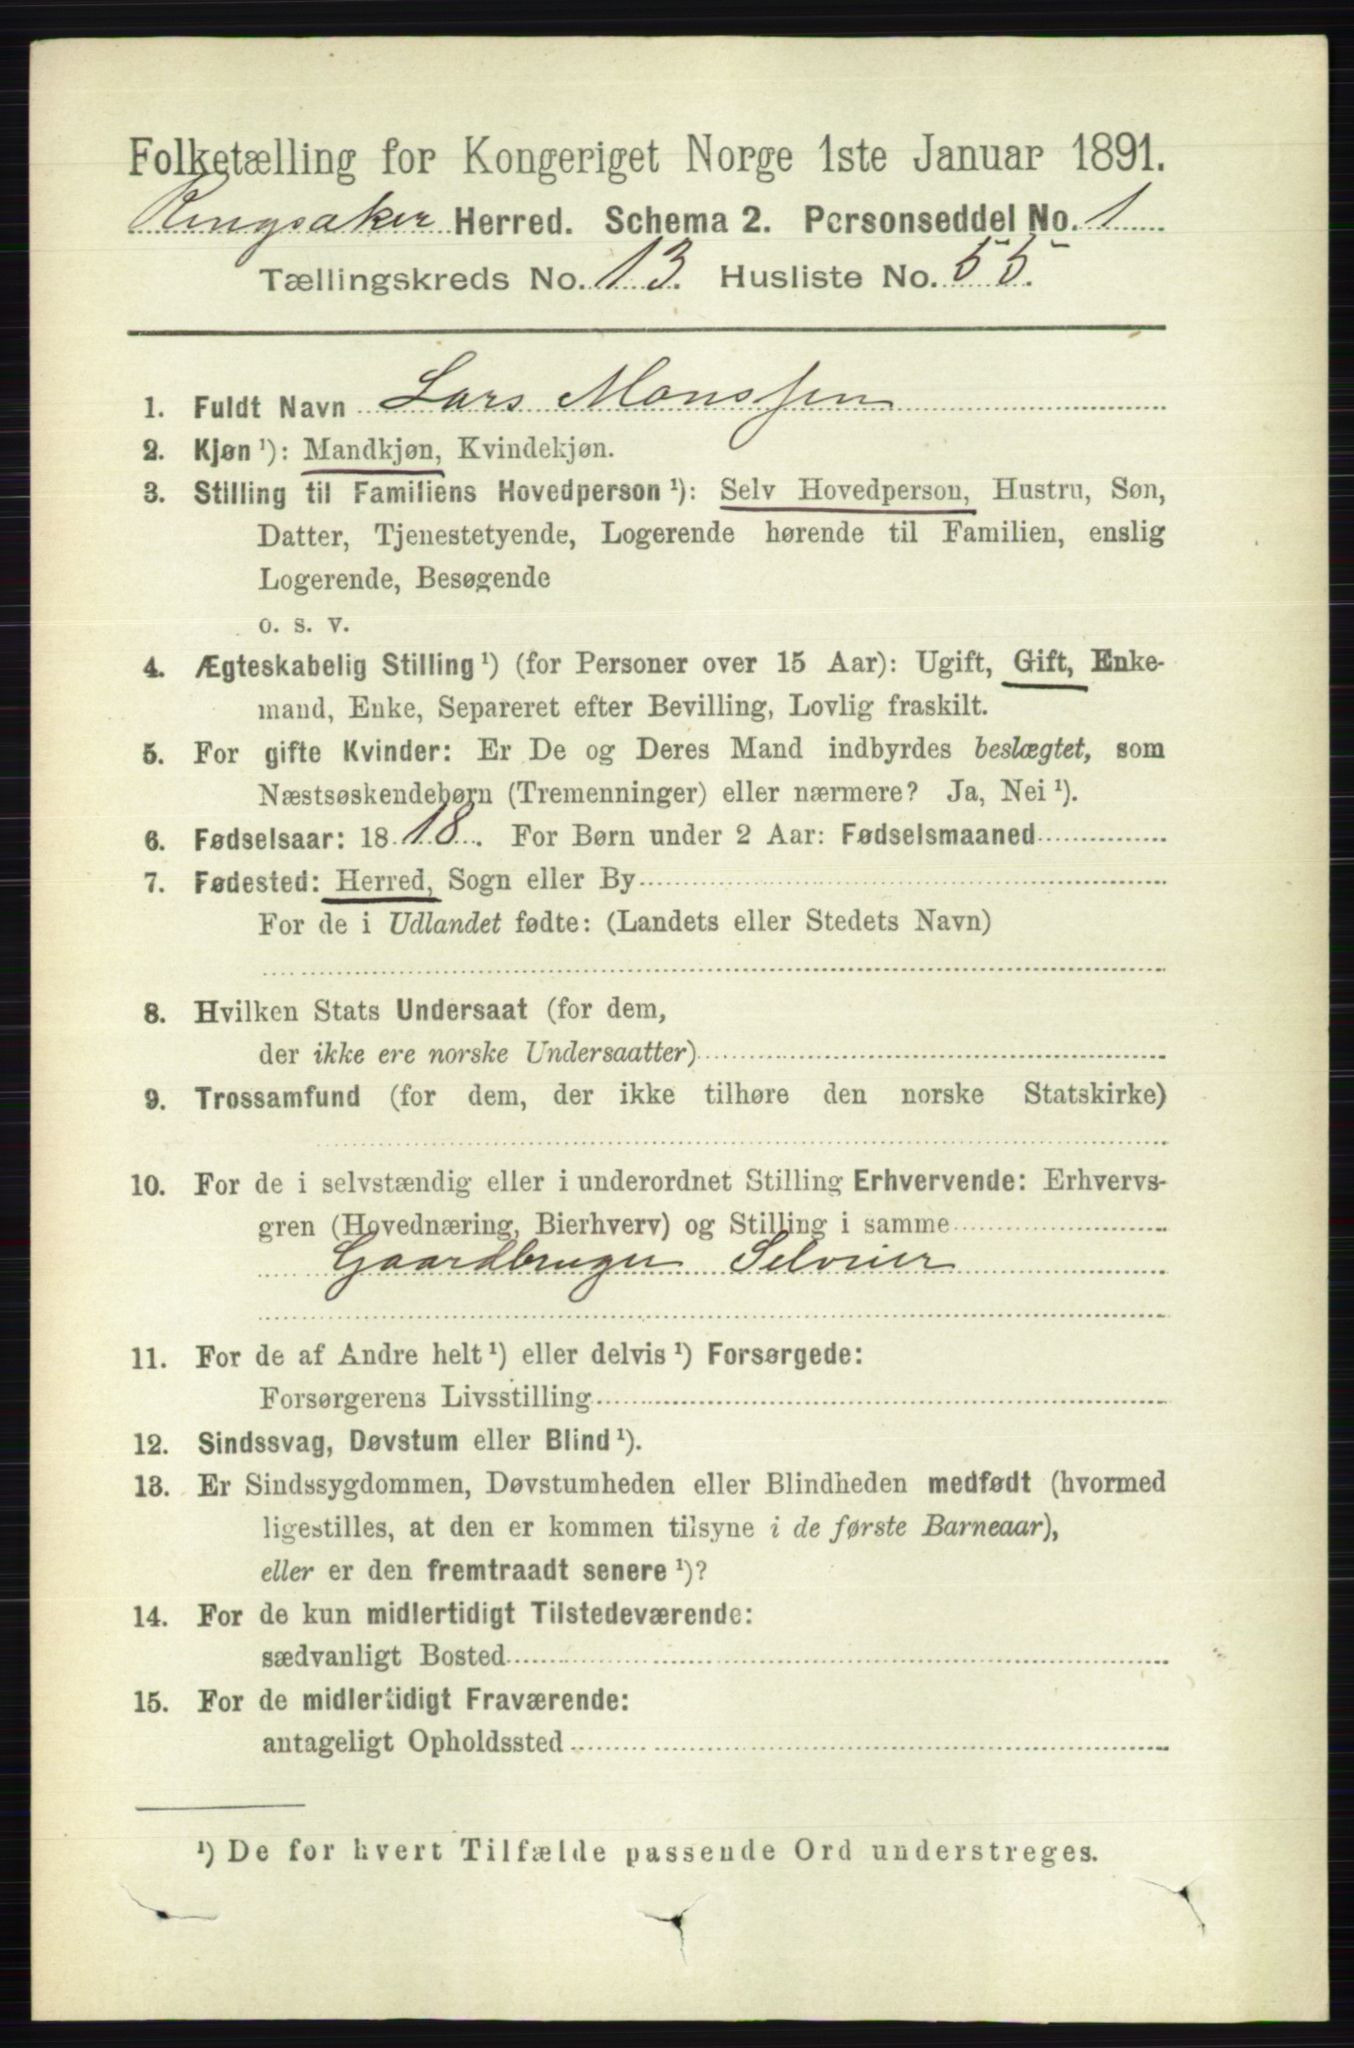 Folketælling for Kongeriget Norge 1ste Januar 1891.
Ringsaker Herred. Schema 2. Personseddel No. 1
Tællingskreds No. 13. Husliste No. 55.
1. Fuldt Navn Lars Monssen
2. Kjøn ¹): Mandkjøn, Kvindekjøn.
3. Stilling til Familiens Hovedperson ¹): Selv Hovedperson, Hustru, Søn,
Datter, Tjenestetyende, Logerende hørende til Familien, enslig
Logerende, Besøgende
o. s. v.
4. Ægteskabelig Stilling ¹) (for Personer over 15 Aar): Ugift, Gift, Enke-
mand, Enke, Separeret efter Bevilling, Lovlig fraskilt.
5. For gifte Kvinder: Er De og Deres Mand indbyrdes beslægtet, som
Næstsøskendebørn (Tremenninger) eller nærmere? Ja, Nei ¹).
6. Fødselsaar: 18 18. For Børn under 2 Aar: Fødselsmaaned
7. Fødested: Herred, Sogn eller By
For de i Udlandet fødte: (Landets eller Stedets Navn)
8. Hvilken Stats Undersaat (for dem,
der ikke ere norske Undersaatter)
9. Trossamfund (for dem, der ikke tilhøre den norske Statskirke)
10. For de i selvstændig eller i underordnet Stilling Erhvervende: Erhvervs-
gren (Hovednæring, Bierhverv) og Stilling i samme
Gaardbruger Selveier
11. For de af Andre helt ¹) eller delvis ¹) Forsørgede:
Forsørgerens Livsstilling
12. Sindssvag, Døvstum eller Blind ¹).
13. Er Sindssygdommen, Døvstumheden eller Blindheden medfødt (hvormed
ligestilles, at den er kommen tilsyne i de første Barneaar),
eller er den fremtraadt senere ¹)?
14. For de kun midlertidigt Tilstedeværende:
sædvanligt Bosted
15. For de midlertidigt Fraværende:
antageligt Opholdssted
¹) De for hvert Tilfælde passende Ord understreges.